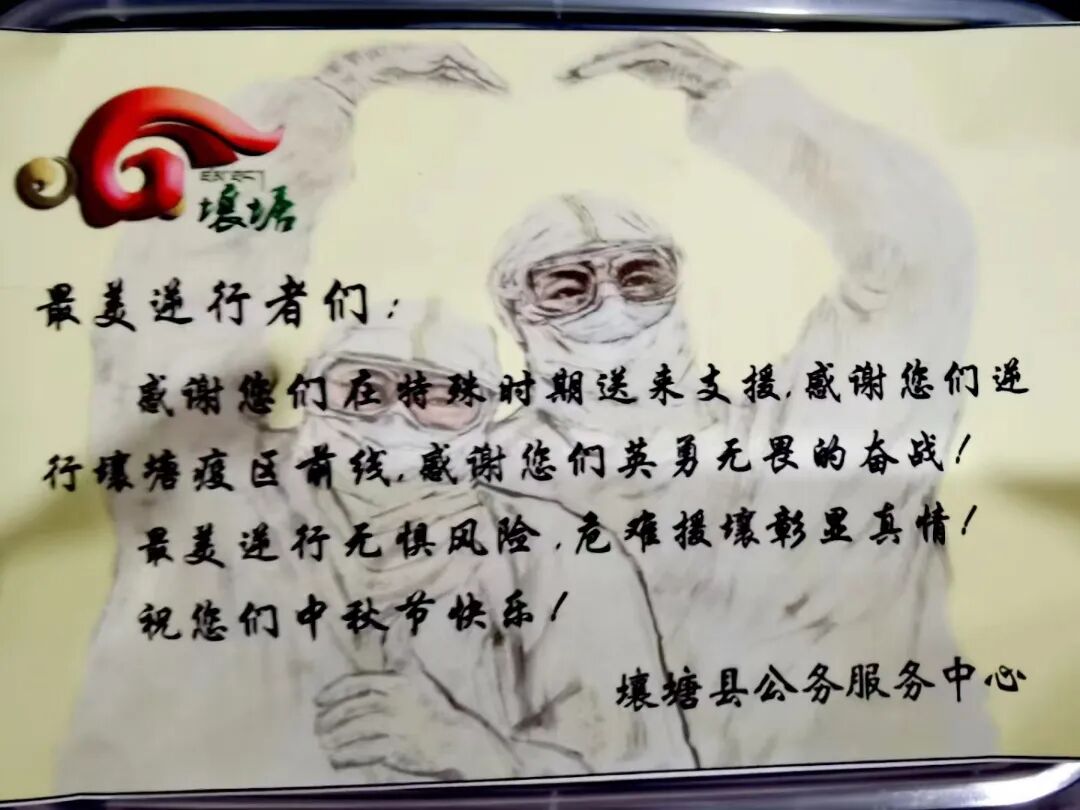 壤塘
最美逆行者们：
感谢您们在特殊时期送来支援，感谢您们逆
行壤塘疫区前线，感谢您们英勇无畏的奋战！
最美逆行无惧风险，危难援壤彰显真情！
祝您们中秋节快乐！
壤塘县公务服务中心